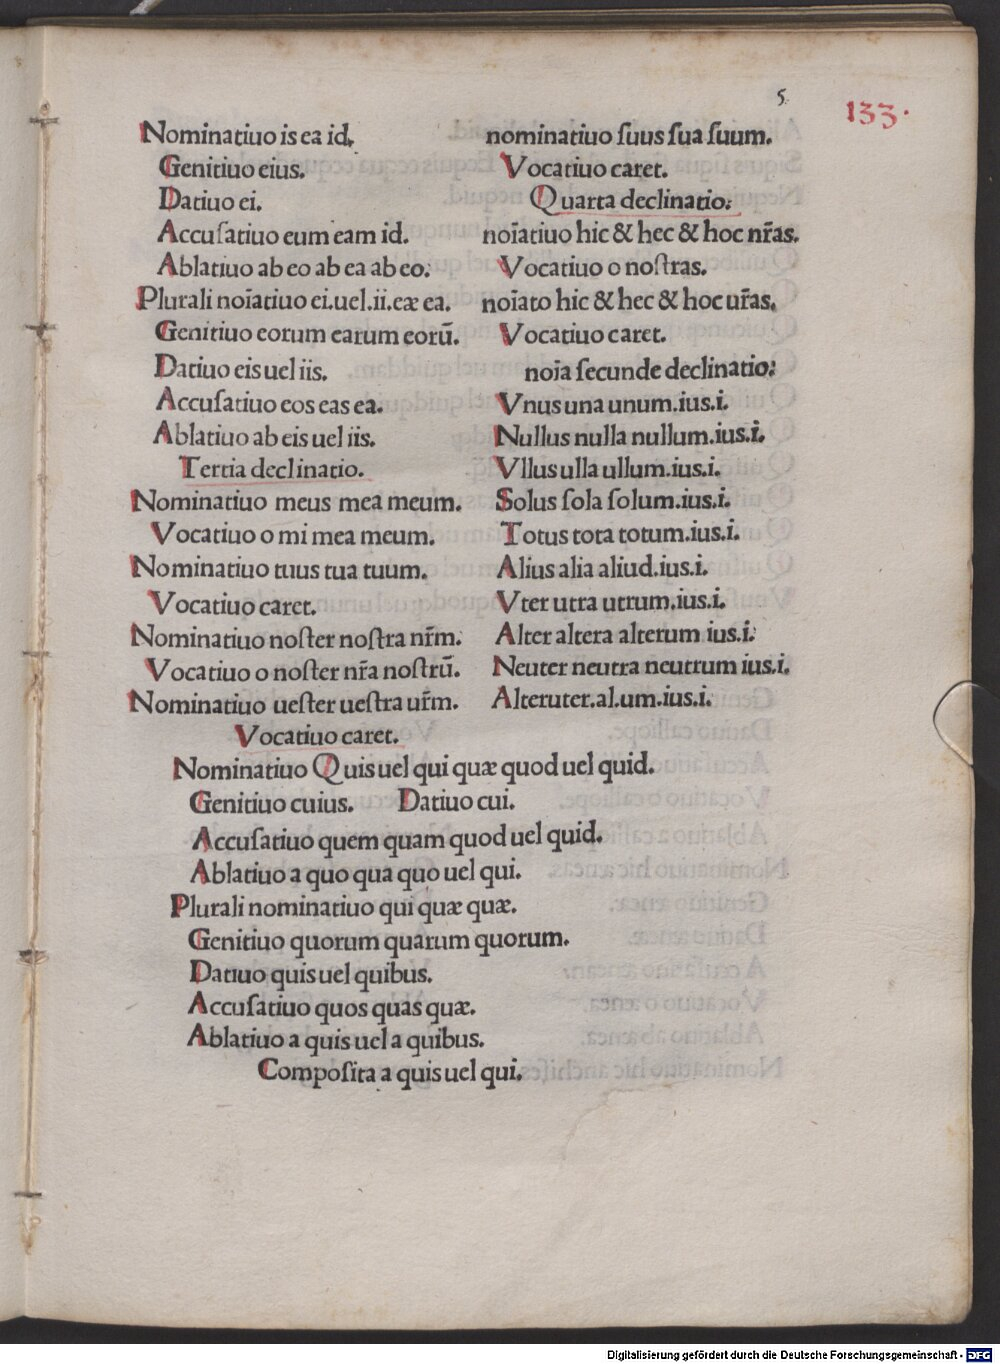 5.
133.
Nominatiuo is ea id.
Genitiuo eius.
Datiuo ei.
Accuſatiuo eum eam id.
Ablatiuo ab eo ab ea ab eo.
Plurali noīatiuo ei.uel.ii.eæ ea.
Genitiuo eorum earum eorū.
Datiuo eis uel iis.
Accuſatiuo eos eas ea.
Ablatiuo ab eis uel iis.
Tertia declinatio.
Nominatiuo meus mea meum.
Vocatiuo o mi mea meum.
Nominatiuo tuus tua tuum.
Vocatiuo caret.
Nominatiuo noſter noſtra nr̄m.
Vocatiuo o noſter nr̄a noſtrū.
Nominatiuo ueſter ueſtra ur̄m.
Vocatiuo caret.
nominatiuo ſuus ſua ſuum.
Vocatiuo caret.
Quarta declinatio.
noīatiuo hic & hec & hoc nr̄as.
Vocatiuo o noſtras.
noīato hic & hec & hoc ur̄as.
Vocatiuo caret.
noīa ſecunde declinatio.
Vnus una unum.ius.i.
Nullus nulla nullum.ius.i.
Vllus ulla ullum.ius.i.
Solus ſola ſolum.ius.i.
Totus tota totum.ius.i.
Alius alia aliud.ius.i.
Vter utra utrum.ius.i.
Alter altera alterum ius.i.
Neuter neutra neutrum ius.i.
Alteruter.al.um.ius.i.
Nominatiuo Quis uel qui quæ quod uel quid.
Genitiuo cuius. Datiuo cui.
Accuſatiuo quem quam quod uel quid.
Ablatiuo a quo qua quo uel qui.
Plurali nominatiuo qui quæ quæ.
Genitiuo quorum quarum quorum.
Datiuo quis uel quibus.
Accuſatiuo quos quas quæ.
Ablatiuo a quis uel a quibus.
Compoſita a quis uel qui.
Digitalisierung gefördert durch die Deutsche Forschungsgemeinschaft - DFG